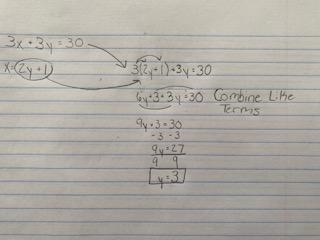 3x+3y=30
x=(2y+1)
3(2y+1)+3y=30
6y+3+3y=30 Combine Like
Terms
9y+3=30
-3 -3
9y=27
9 9
y=3